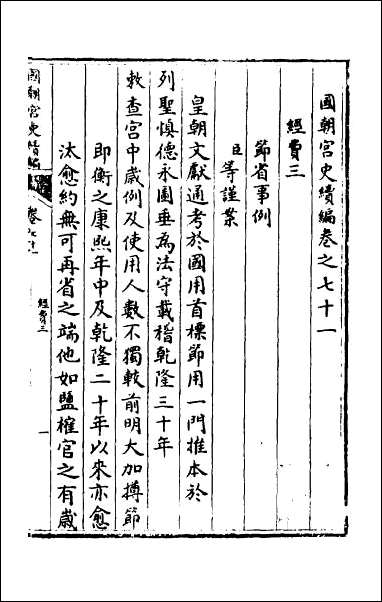 國朝宮史續編卷之七十一
經費三
節省事例
臣等謹案
皇朝文獻通考於國用首標節用一門推本於
列聖慎德永圖垂為法守載稽乾隆三十年
敕查宮中歲例及使用人數不獨較前明大加撙節
即衡之康熙年中及乾隆二十年以來亦愈
汰愈約無可再省之端他如鹽榷官之有歲
國朝宮史續編
卷七十一
經費三
一